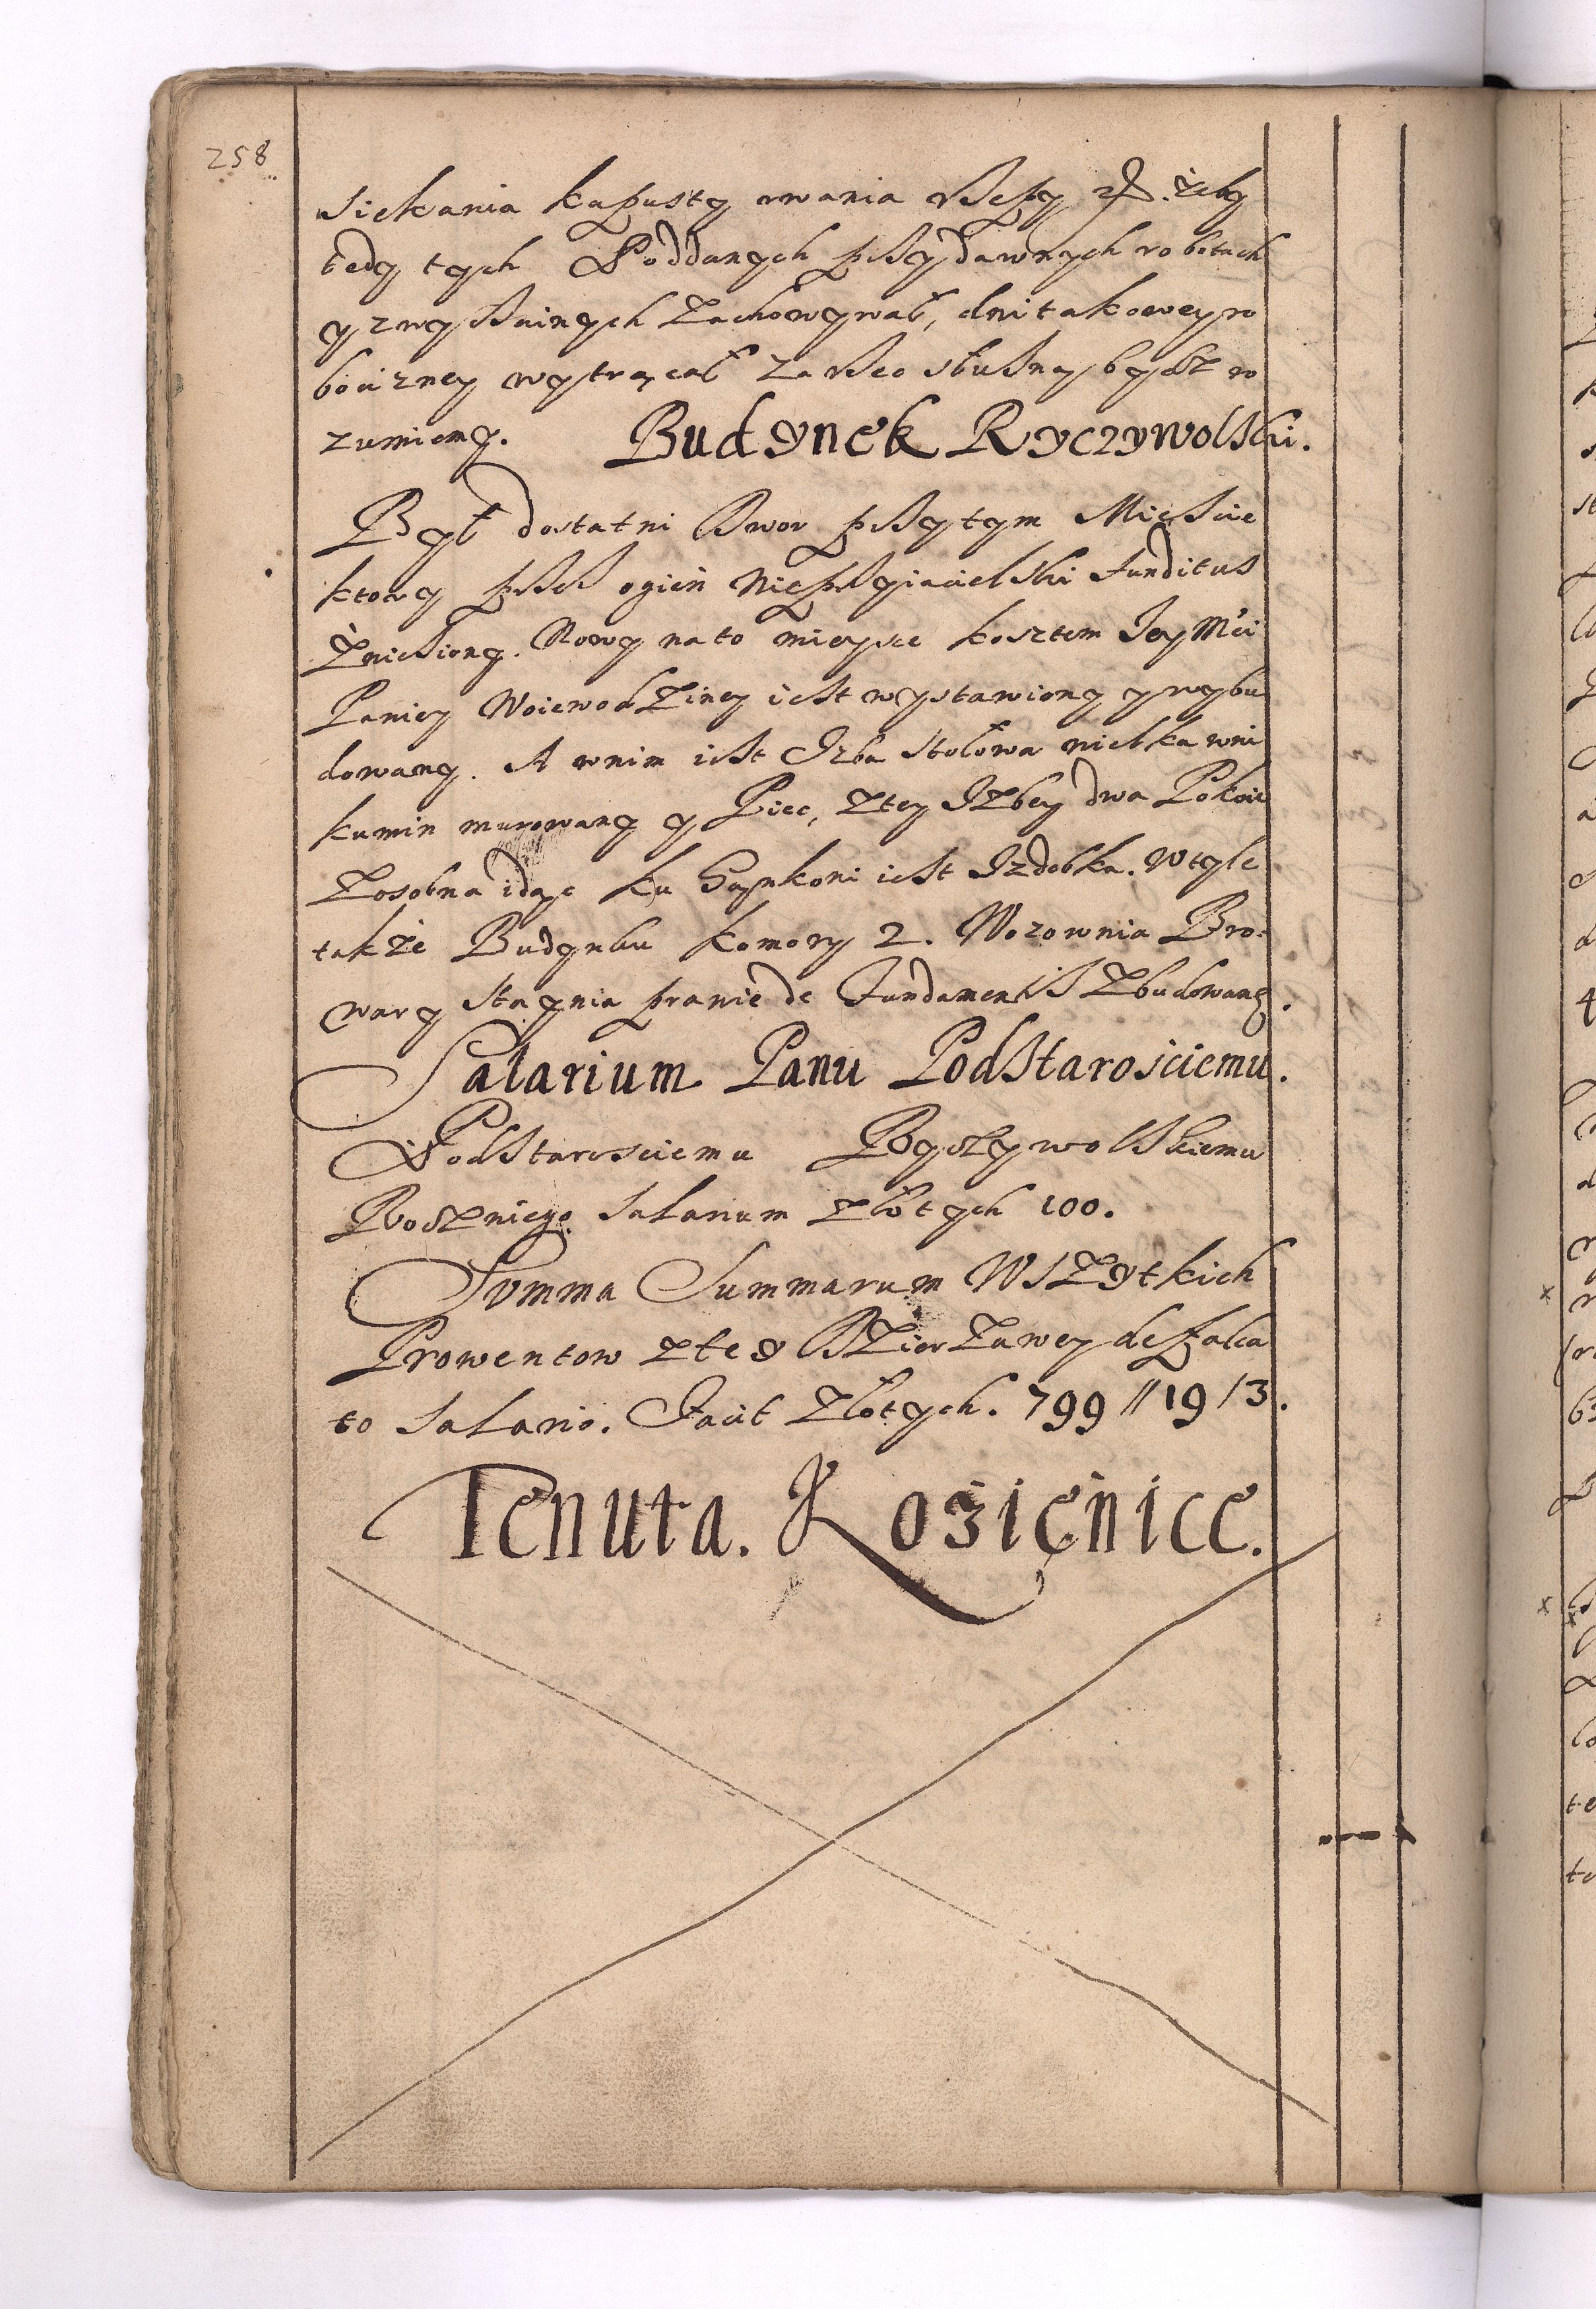 258
siekania kapusty rwania rzepy etc. żeby
tedy tych Poddanych przy dawnych robotach
y zwyczainych zachowywał, dni takowey ro
bocizney wytrącał za rzecz słuszną bydz ro
zumiemy. Budynek Ryczywolski.
Był dostatni Dwor przy tym Miescie
ktory przez ogień Nieprzyiacielski funditus
Zniesiony. Nowy na to mieysce kosztem Jey Mci
Paniey Woiewodziney iest wystawiony y wybu
dowany. A wnim iest Izba stołowa wielka wni
kumin murowany y Piec, ztey Izbey dwa Pokoie
Zosobna idąc ku iest Izdebka. Wtyle
także Budynku komory 2. Wozownia Bro:
wary Staynia prawie de Fundamentis Zbudowany.
Salarium Panu Podstarosciemu.
Podstarosciemu Ryczywolskiemu
Roczniego Salarium złotych 100.
Summa Summarum Wszytkich
Prowentow ztey Dzierzawey defalca
to salario. Facit Złotych. 799 // 19 / 3.
Tenuta. Kozienice.